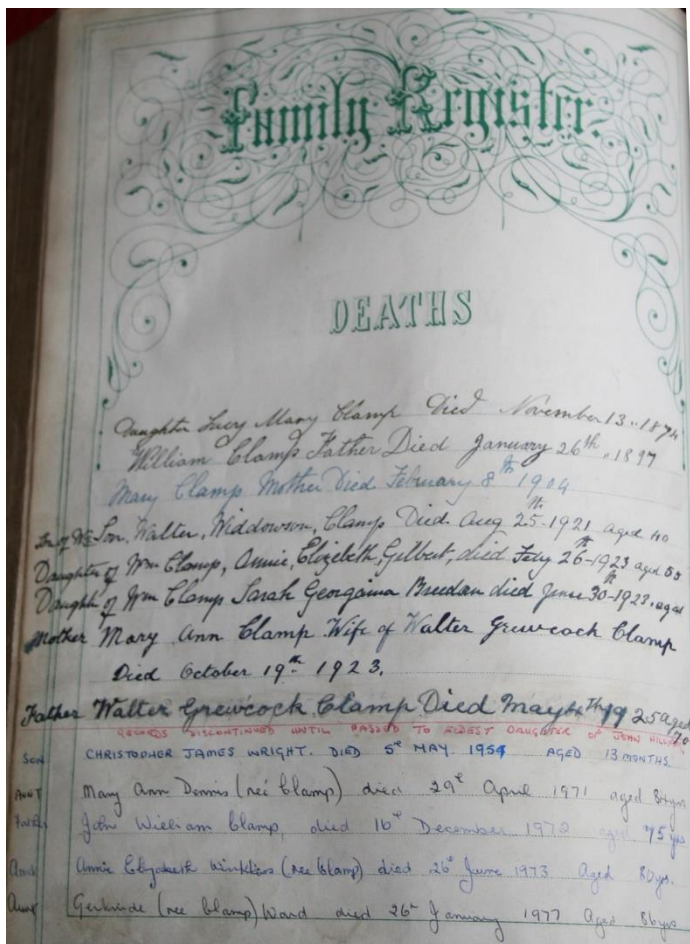 Family Register.
DEATHS
Daughter Lucy Mary Clamp Died November 13.. 1874
William Clamp Father Died January 26th .. 1897
Mary Clamp Mother Died February 8th 1904
Son, Walter, Widdowson, Clamp Died. Aug 25th - 1921 aged 40
Daughter of Wm Clamp, Annie, Elizebeth, Gilbert, died Feby 26th - 1923 aged 50
Daughter of Wm Clamp Sarah Georgaina died June 30th - 1923. aged
Mother Mary Ann Clamp Wife of Walter Grewcock Clamp
Died October 19th 1923.
Father Walter Grewcock Clamp Died May 4th 1925 aged 70
RECORDS DISCONTINUED UNTIL PASSED TO ELDEST DAUGHTER OF JOHN
SON CHRISTOPHER JAMES WRIGHT. DIED 5th MAY. 1954 AGED 13 MONTHS.
AUNT Mary Ann Dennis (neé Clamp) died 29th April 1971 aged 84yrs
Father John William Clamp, died 16th December 1972 aged 75 yrs
Aunt Annie Elizabeth (nee Clamp) died 26th June 1973 Aged 80yrs.
Aunt Gertrude (nee Clamp) Ward died 26th January 1977 Aged 86yrs